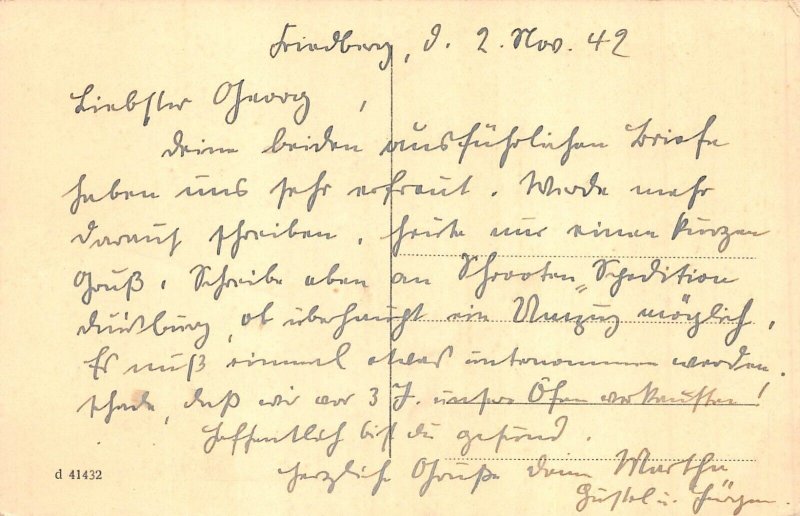 Friedberg, d. 2. Nov. 42
Liebster Georg,
Deine beiden ausführlichen Briefe
haben uns sehr erfreut. Werde mehr
darauf schreiben, heute nur einen kurzen
Gruß. Schreibe eben an Schrooten Spedition
Duisburg, ob überhaupt ein Umzug möglich.
Es muß einmal etwas unternommen werden.
Schade, daß wir vor 3 J. unsere Öfen verkauften!
Hoffentlich bist du gesund.
Herzliche Grüße Deine Martha
Gustel u. Jürgen.
d 41432